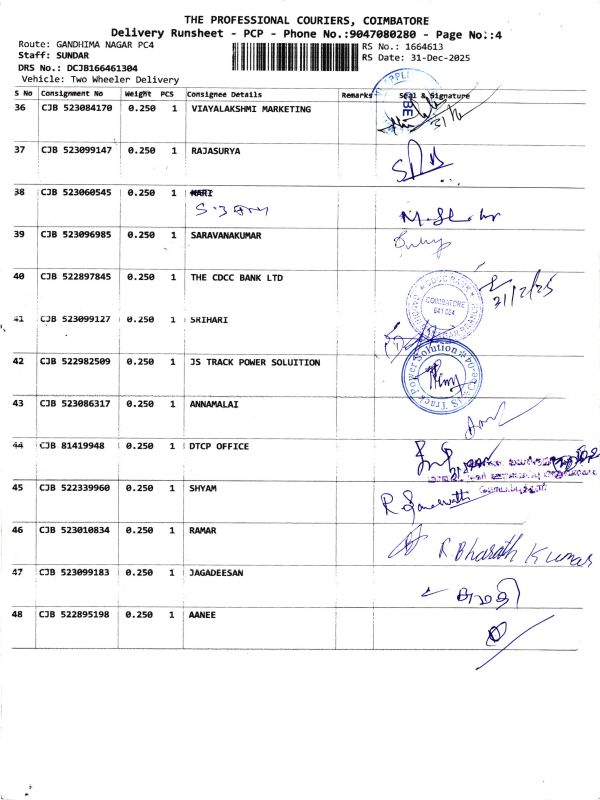 THE PROFESSIONAL COURIERS, COIMBATORE
Delivery Runsheet - PCP - Phone No.:9047080280 - Page No.:4
Route: GANDHIMA NAGAR PC4
RS No.: 1664613
Staff: SUNDAR
RS Date: 31-Dec-2025
DRS No.: DCJB166461304
Vehicle: Two Wheeler Delivery
S No Consignment No Weight PCS Consignee Details Remarks Seal & Signature
36 CJB 523084170 0.250 1 VIAYALAKSHMI MARKETING
37 CJB 523099147 0.250 1 RAJASURYA
38 CJB 523060545 0.250 1 HARI
39 CJB 523096985 0.250 1 SARAVANAKUMAR
40 CJB 522897845 0.250 1 THE CDCC BANK LTD
COIMBATORE
641 004
31/12/25
41 CJB 523099127 0.250 1 SRIHARI
42 CJB 522982509 0.250 1 JS TRACK POWER SOLUITION
JS Track Power Solution
43 CJB 523086317 0.250 1 ANNAMALAI
44 CJB 81419948 0.250 1 DTCP OFFICE
45 CJB 522339960 0.250 1 SHYAM
46 CJB 523010834 0.250 1 RAMAR
R Bharath Kumar
47 CJB 523099183 0.250 1 JAGADEESAN
48 CJB 522895198 0.250 1 AANEE